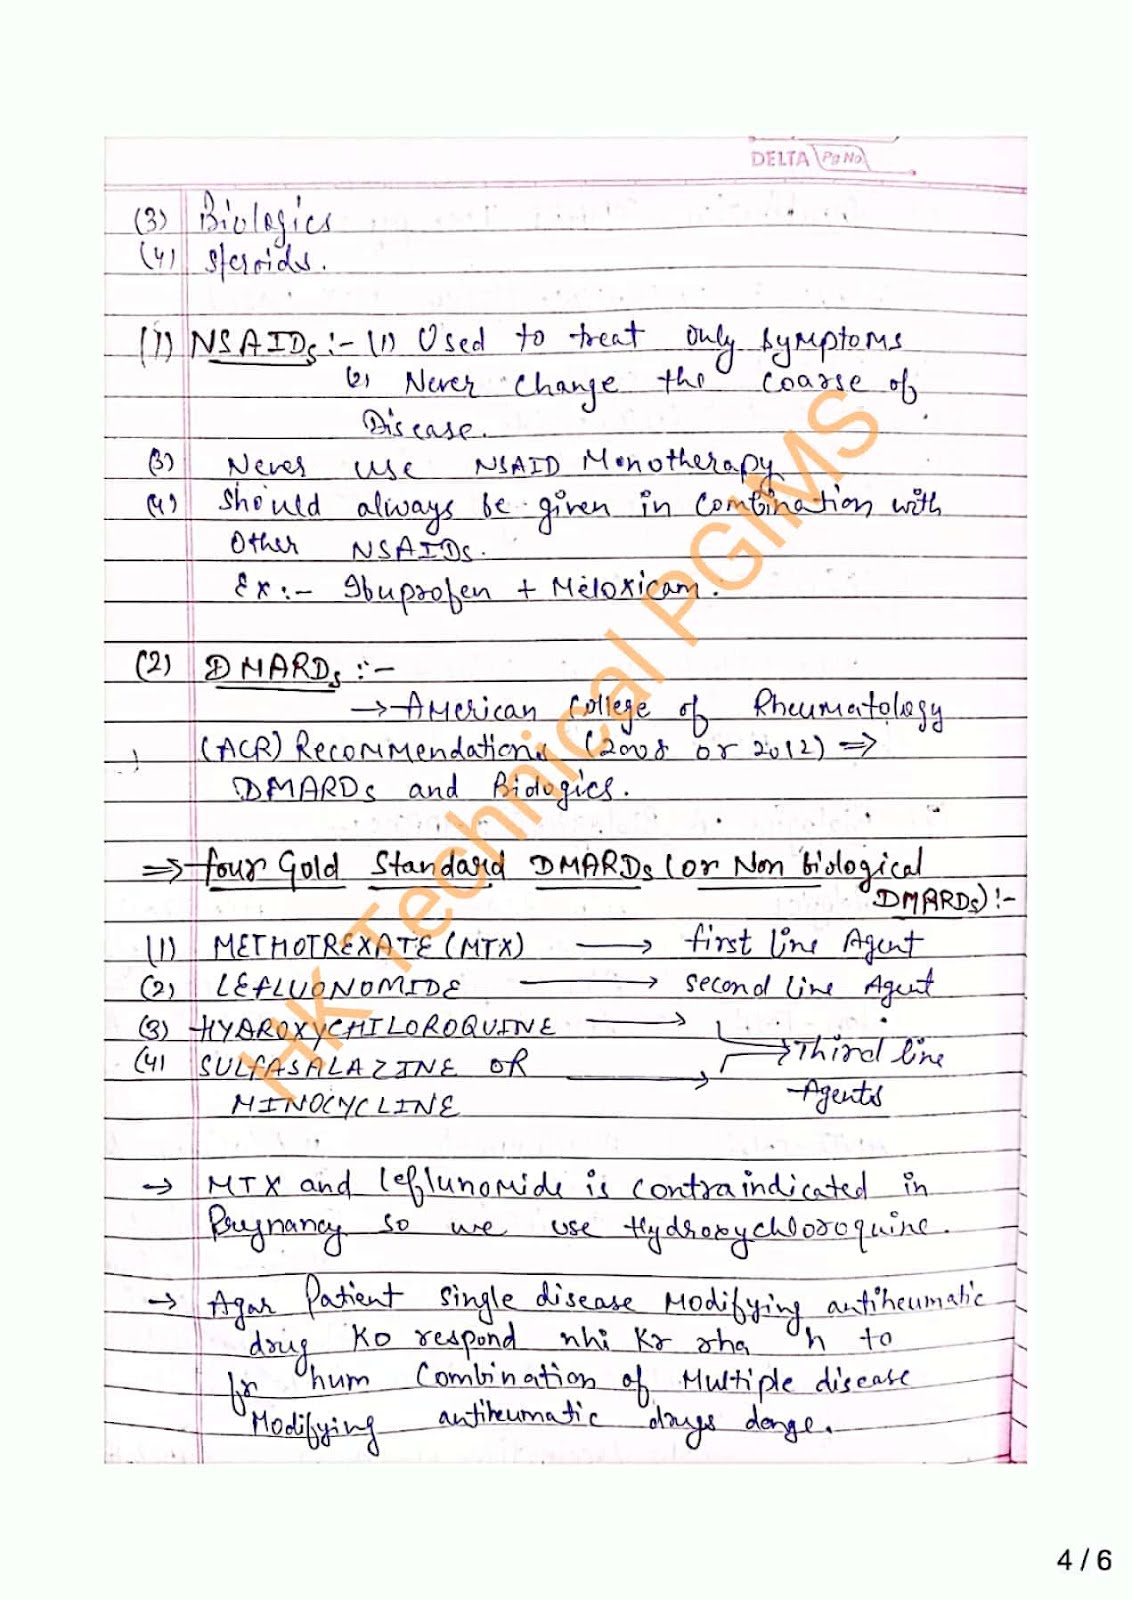 DELTA Pg No
(3) Biologics
(4) Steroids.
(1) NSAIDs :- (1) Used to treat only symptoms
(2) Never change the coarse of
Disease.
(3) Never use NSAID Monotherapy
(4) Should always be given in combination with
other NSAIDs.
Ex:- Ibuprofen + Meloxicam.
(2) DMARDs :-
→ American College of Rheumatology
(ACR) Recommendations (2008 or 2012) ⇒
DMARDs and Biologics.
⇒ four Gold Standard DMARDs (or Non biological
DMARDs) :-
(1) METHOTREXATE (MTX) → first line Agent
(2) LEFLUONOMIDE → second line Agent
(3) HYDROXYCHILOROQUINE →
(4) SULFASALAZINE OR → Third line
MINOCYCLINE Agents
→ MTX and leflunomide is contraindicated in
Pregnancy so we use Hydroxychloroquine.
→ Agar Patient single disease Modifying antiheumatic
drug Ko respond nhi Kr rha h to
fr hum Combination of Multiple disease
Modifying antiheumatic drugs denge.
HK Technical PGIMS
4 / 6